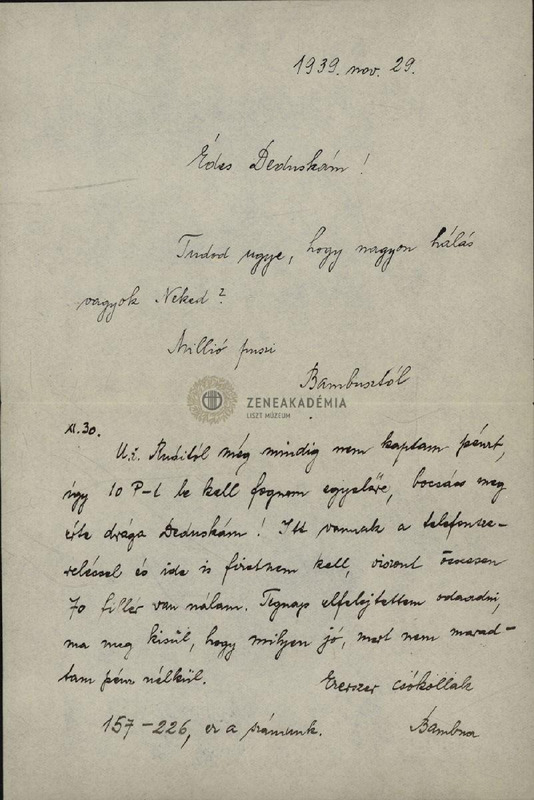 1939. nov. 29.
Édes Deduskám!
Tudod ugye, hogy nagyon hálás
vagyok Neked?
Millió puszi
Bambusztól
ZENEAKADÉMIA
LISZT MÚZEUM
XI. 30.
U.i. Rusitól még mindig nem kaptam pénzt,
így 10 P-t be kell fognem egyelőre, bocsáss meg
érte drága Deduskám! Itt vannak a telefonsze-
reléssel és ide is fizetnem kell, viszont összesen
70 fillér van nálam. Tegnap elfelejtettem odaadni,
ma meg kisül, hogy milyen jó, mert nem marad-
tam pénz nélkül.
Ezerszer csókollak
157-226, ez a számunk.
Bambusz